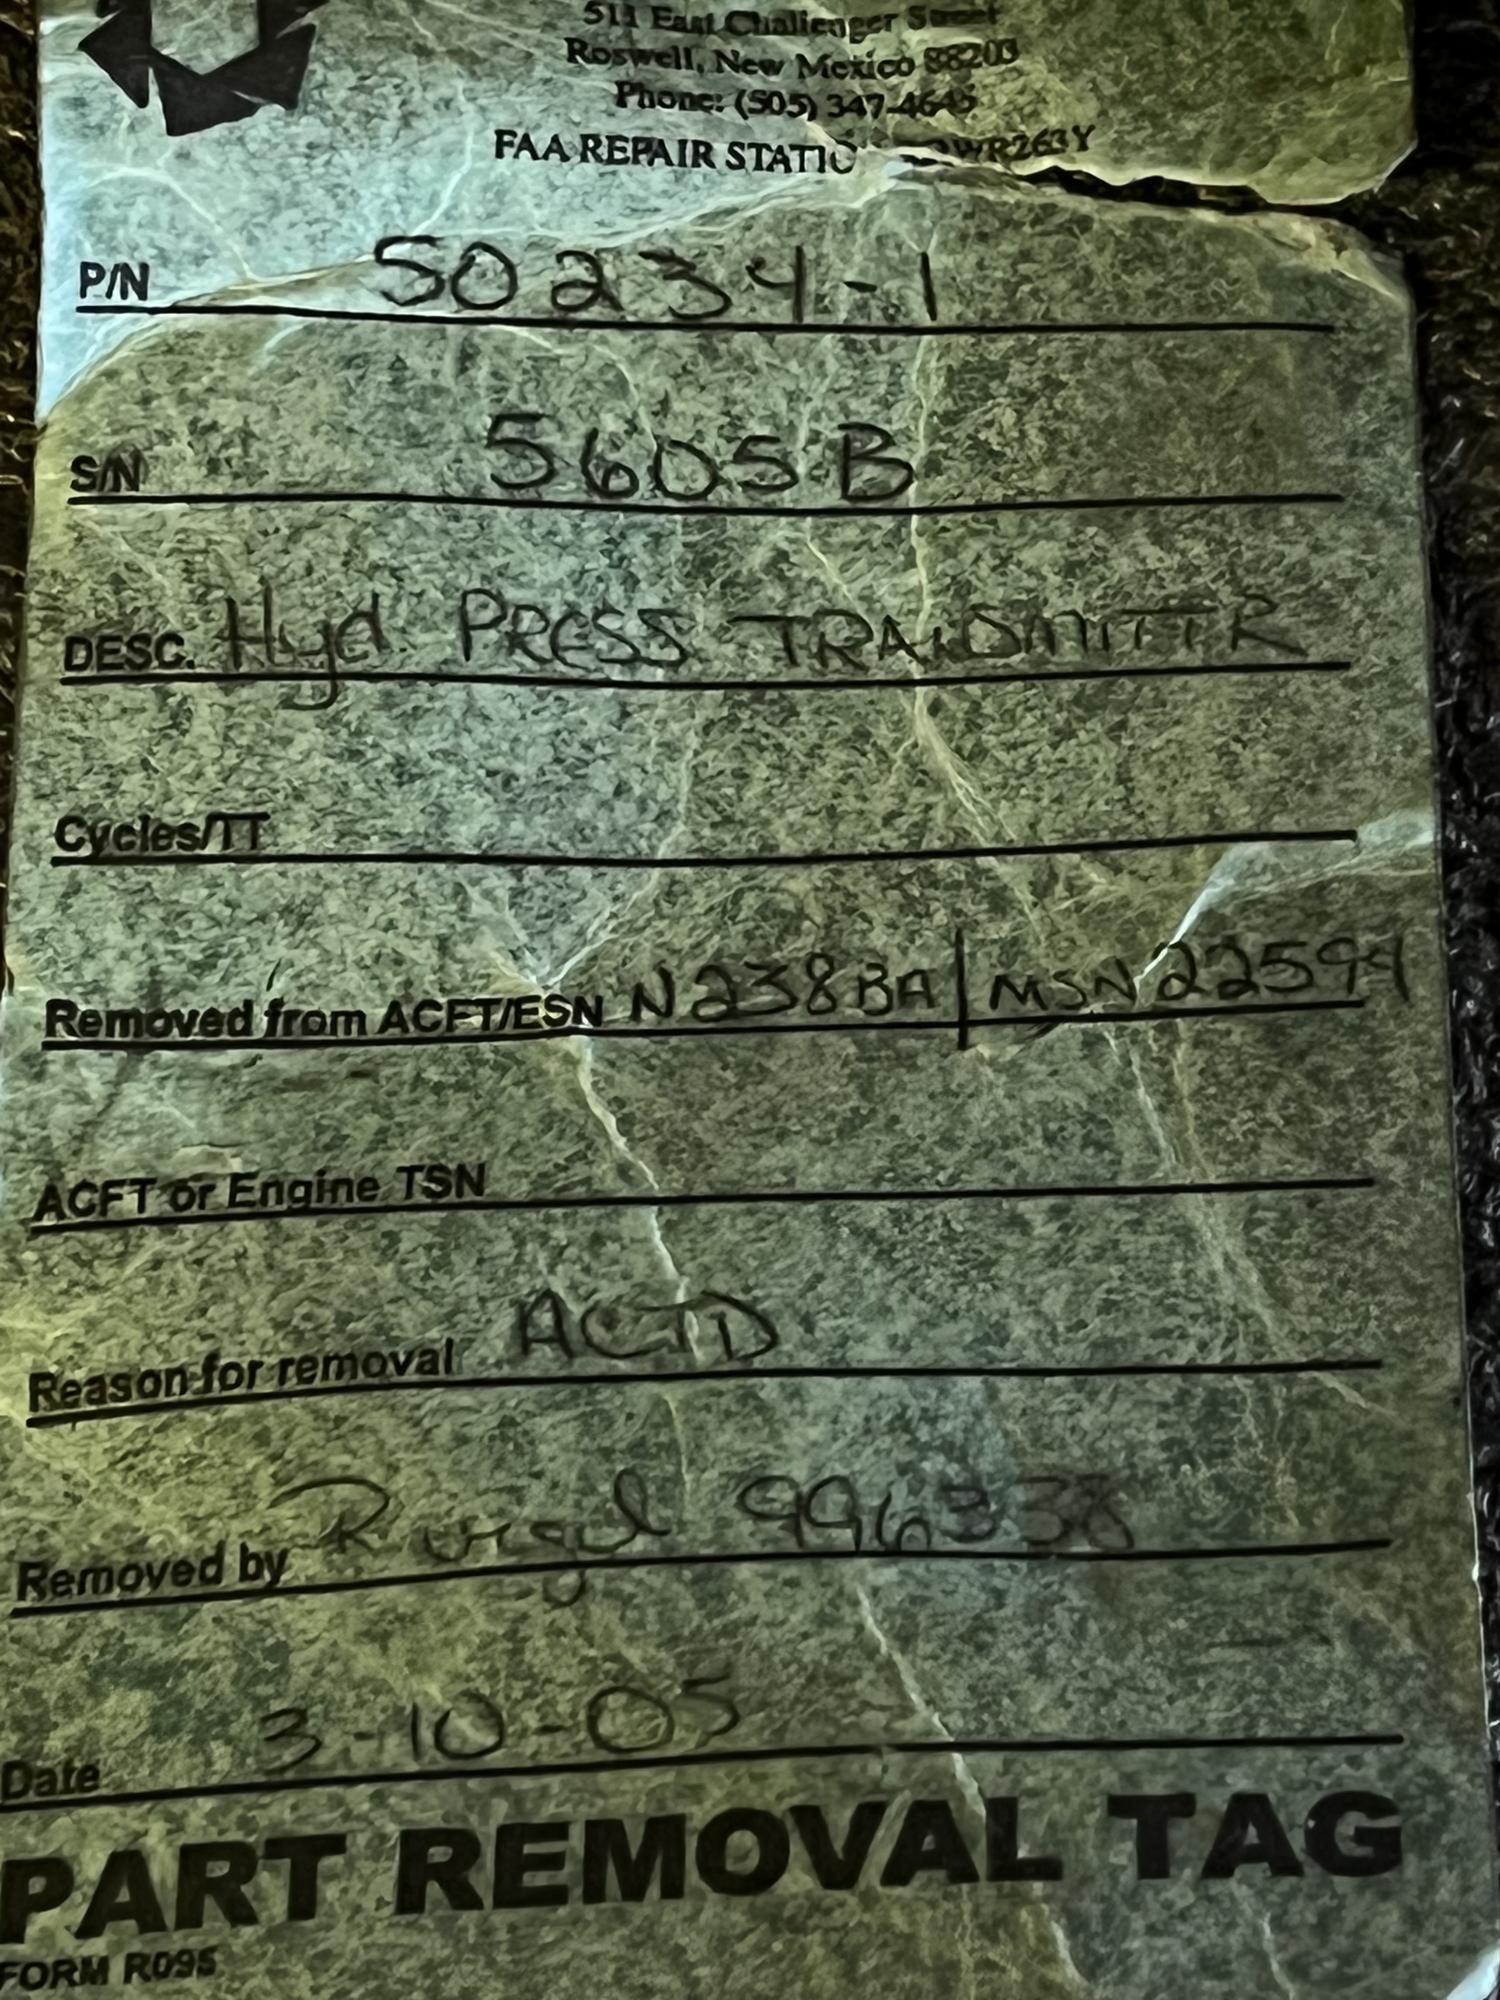 511 East Challenger Street
Roswell, New Mexico 88203
Phone: (505) 347-4645
FAA REPAIR STATIO WR263Y
P/N 50234-1
S/N 5605B
DESC. Hyd PRESS TRANSMITTR
Cycles/TT
Removed from ACFT/ESN N238BA/MSN22594
ACFT or Engine TSN
Reason for removal
Removed by 996338
Date 3-10-05
PART REMOVAL TAG
FORM R095